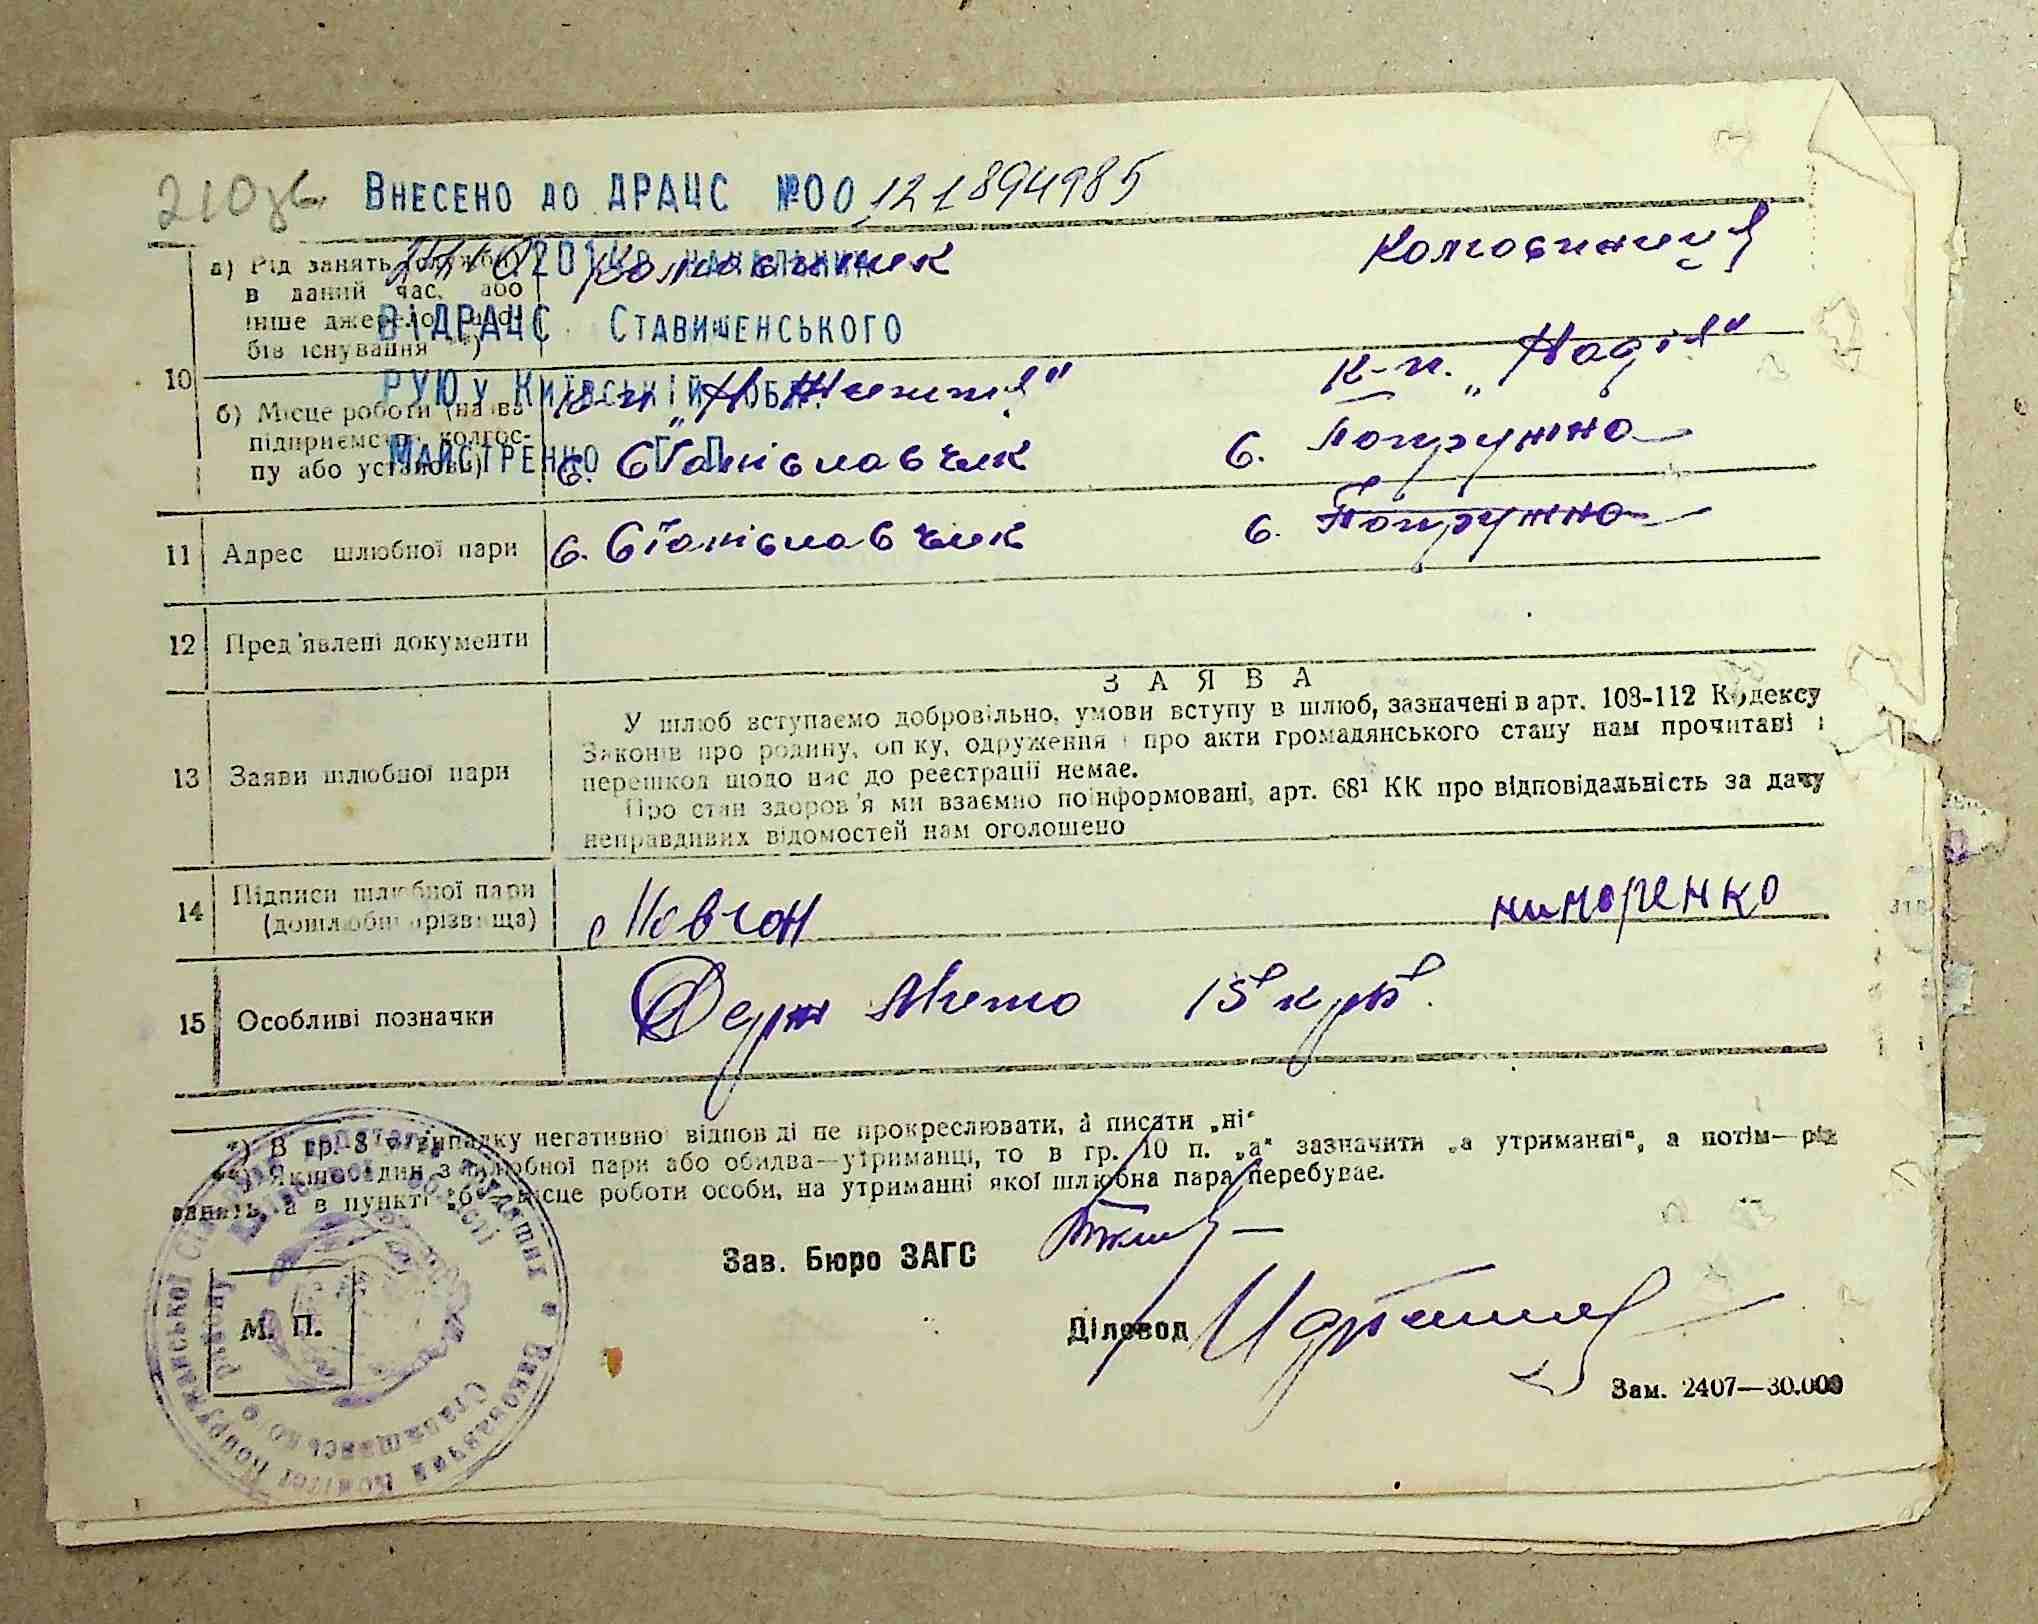 210зв. ВНЕСЕНО ДО ДРАЦС №00 121894985
10
а) Рід занять (служби)
в даний час, або
інше джерело
бів існування **)
Колгоспник Колгоспниця
НАЧАЛЬНИК
ВІДРАЦС СТАВИЩЕНСЬКОГО
РУЮ У КИЇВСЬКІЙ ОБЛ.
МАЙСТРЕНКО Г. П.
б) Місце роботи (назва
підприємства, колгос-
пу або установи)
к-п „Н Життя" к-п. „Надія"
с. Станіславчик с. Попружна
11 Адрес шлюбної пари с. Станіславчик с. Попружна
12 Пред'явлені документи
13 Заяви шлюбної пари
ЗАЯВА
У шлюб вступаємо добровільно, умови вступу в шлюб, зазначені в арт. 108-112 Кодексу
Законів про родину, опіку, одруження і про акти громадянського стану нам прочитані і
перешкод щодо нас до реєстрації немає.
Про стан здоров'я ми взаємно поінформовані, арт. 68¹ КК про відповідальність за дачу
неправдивих відомостей нам оголошено
14 Підписи шлюбної пари
(дошлюбні прізвища)
Мовчан Ничоренко
15 Особливі позначки Держ Мито 15 крб.
*) В гр. 8 у випадку негативної відповіді не прокреслювати, а писати „ні"
**) Якщо один з шлюбної пари або обидва—утриманці, то в гр. 10 п. „а" зазначити „а утриманні", а потім—рід
занять, а в пункті „б" місце роботи особи, на утриманні якої шлюбна пара перебуває.
Зав. Бюро ЗАГС
Діловод
М. П.
Зам. 2407—30.000
Виконавчий Комітет Попружанської Сільської Ради депутатів трудящих
Ставищанського району
Київської області